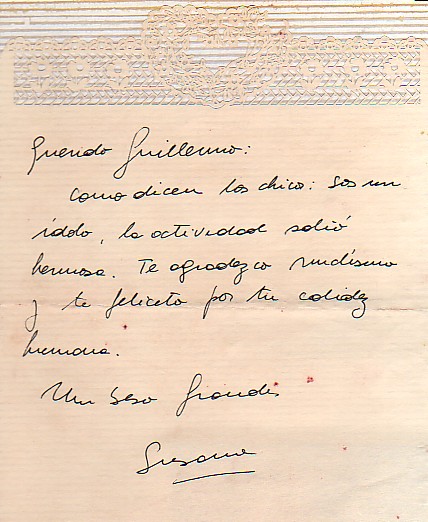 Querido Guillermo:
Como dicen los chico: sos un
ídolo, la actividad salió
hermosa. Te agradezco muchísimo
y te felicito por tu calidez
humana.
Un beso Grande
Susana